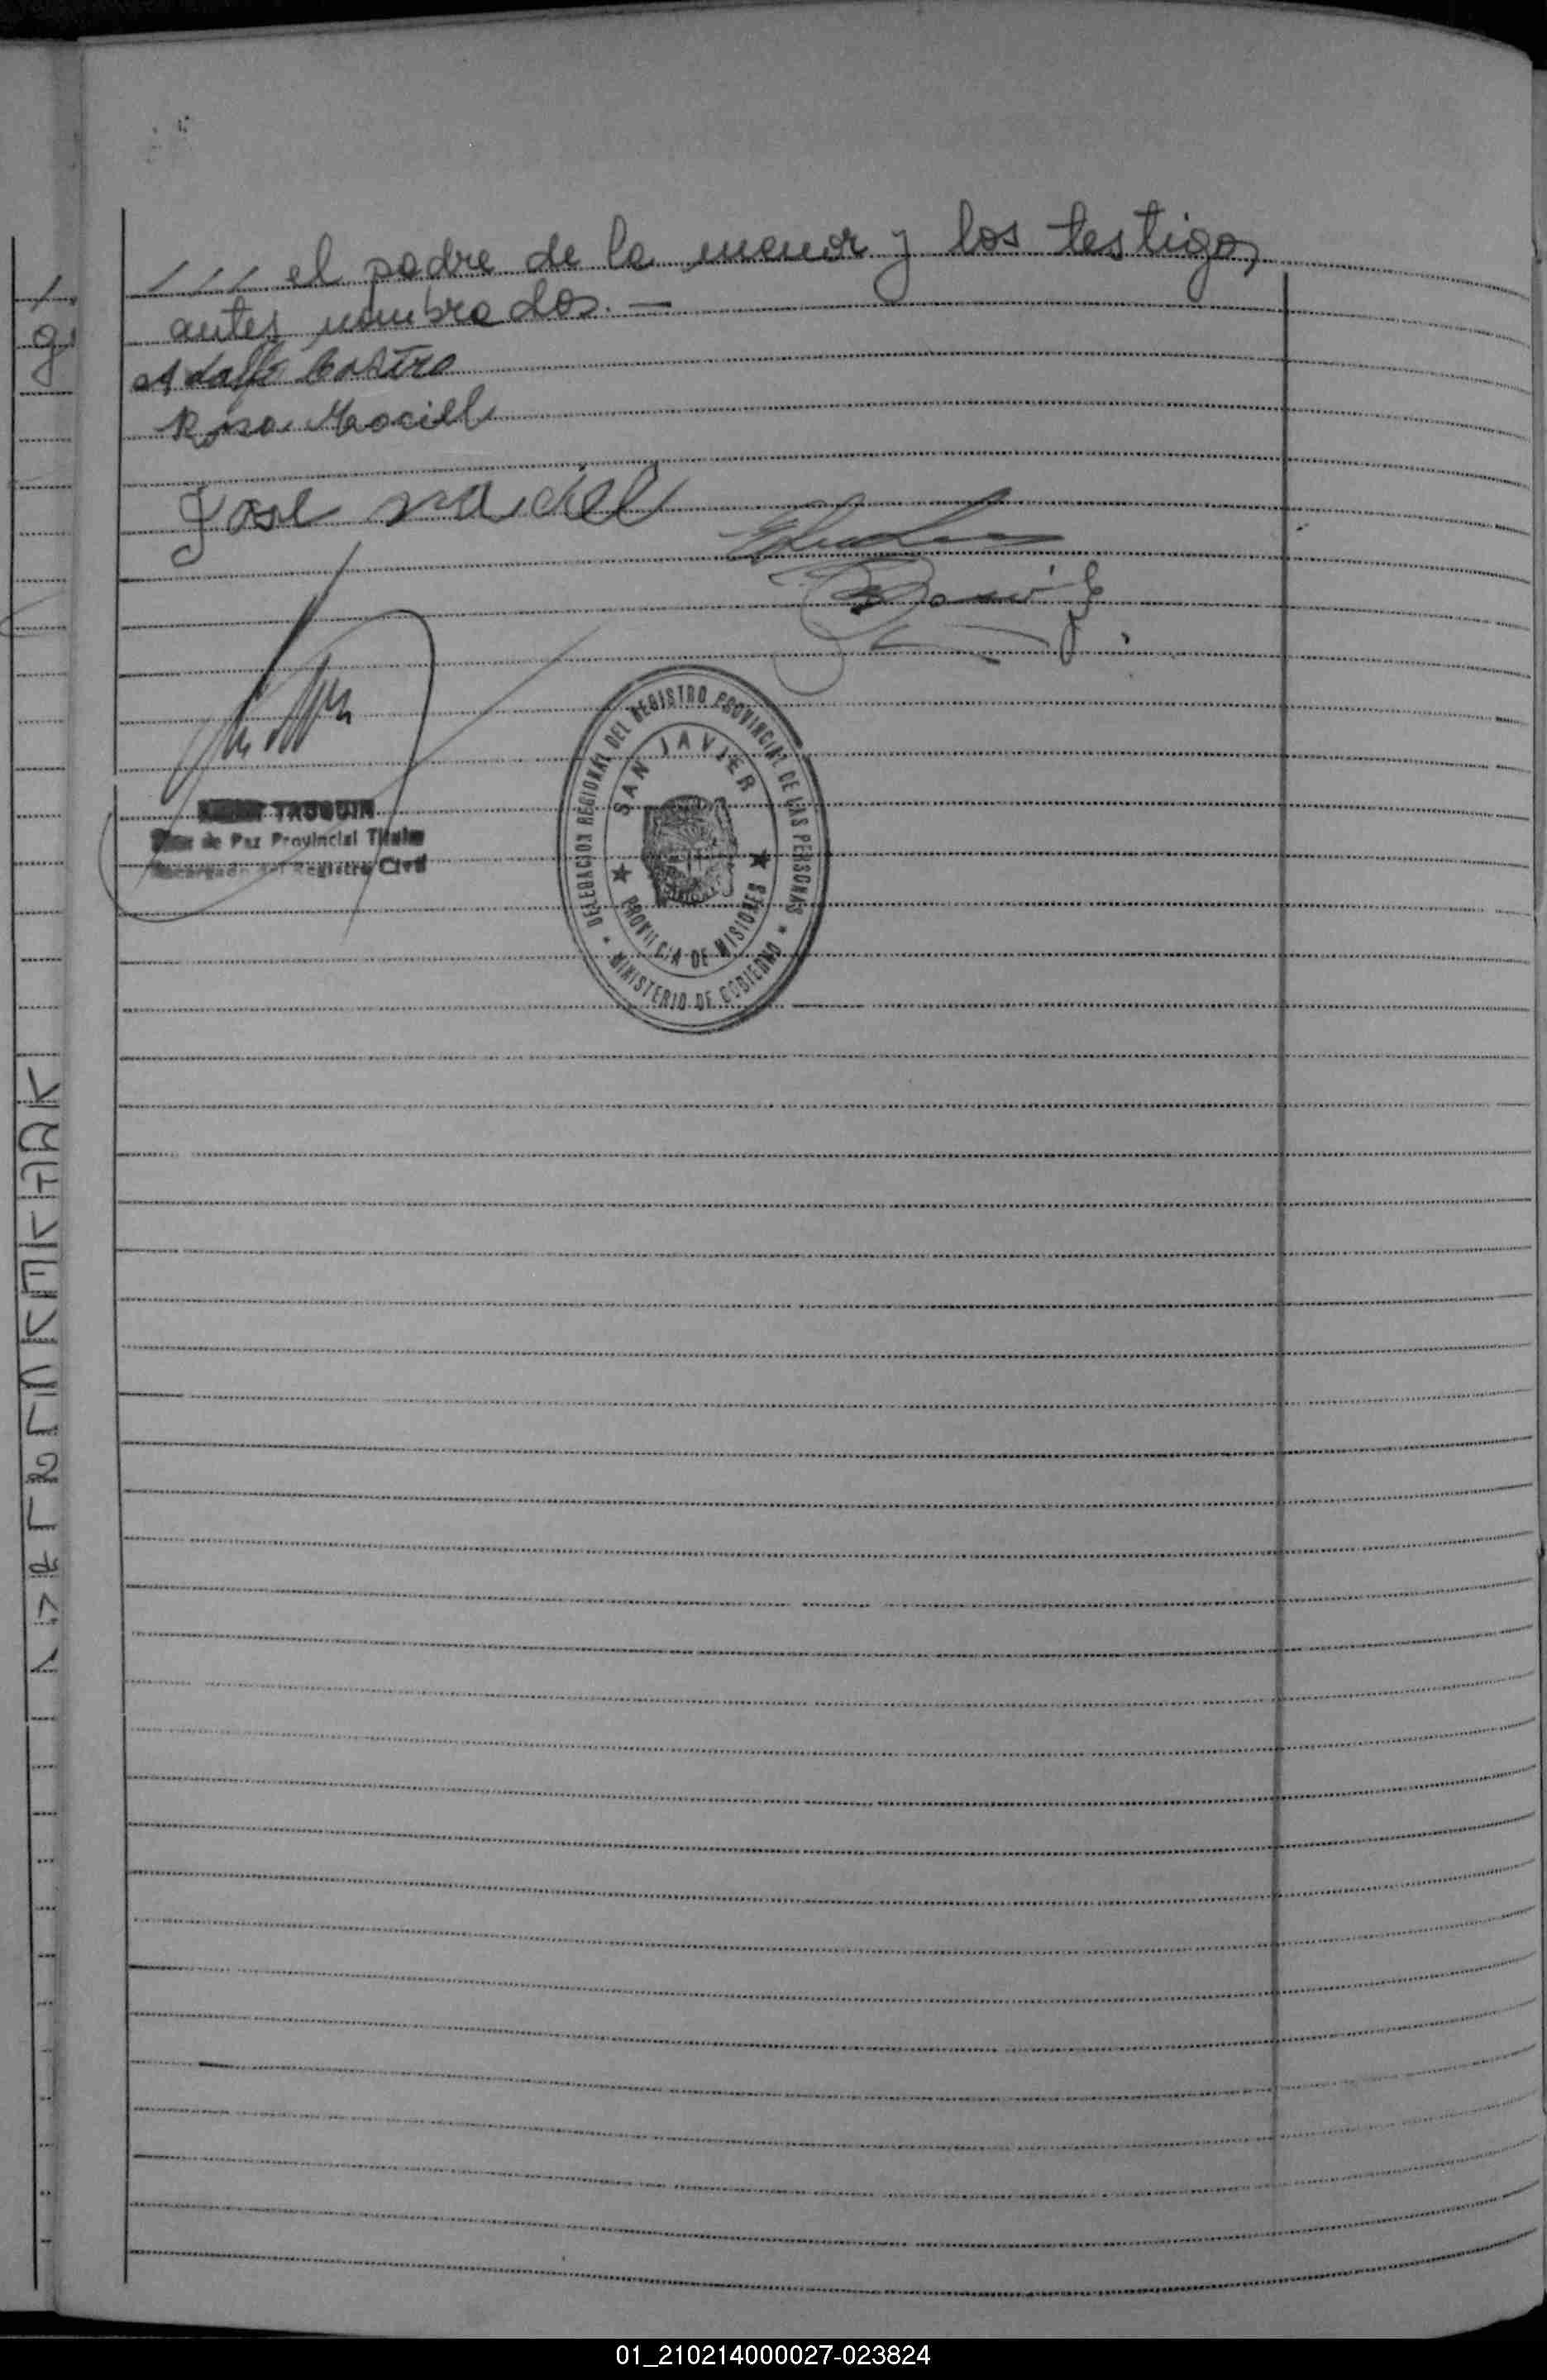 / / / el padre de la menor y los testigos
antes nombrados. —
Adolfo Castro
Rosa Maciel
Jose Maciel
TROUQUIN
Juez de Paz Provincial Titular
Encargado del Registro Civil
DELEGACION REGIONAL DEL REGISTRO PROVINCIAL DE LAS PERSONAS
SAN JAVIER
PROVINCIA DE MISIONES
MINISTERIO DE GOBIERNO
01_210214000027-023824